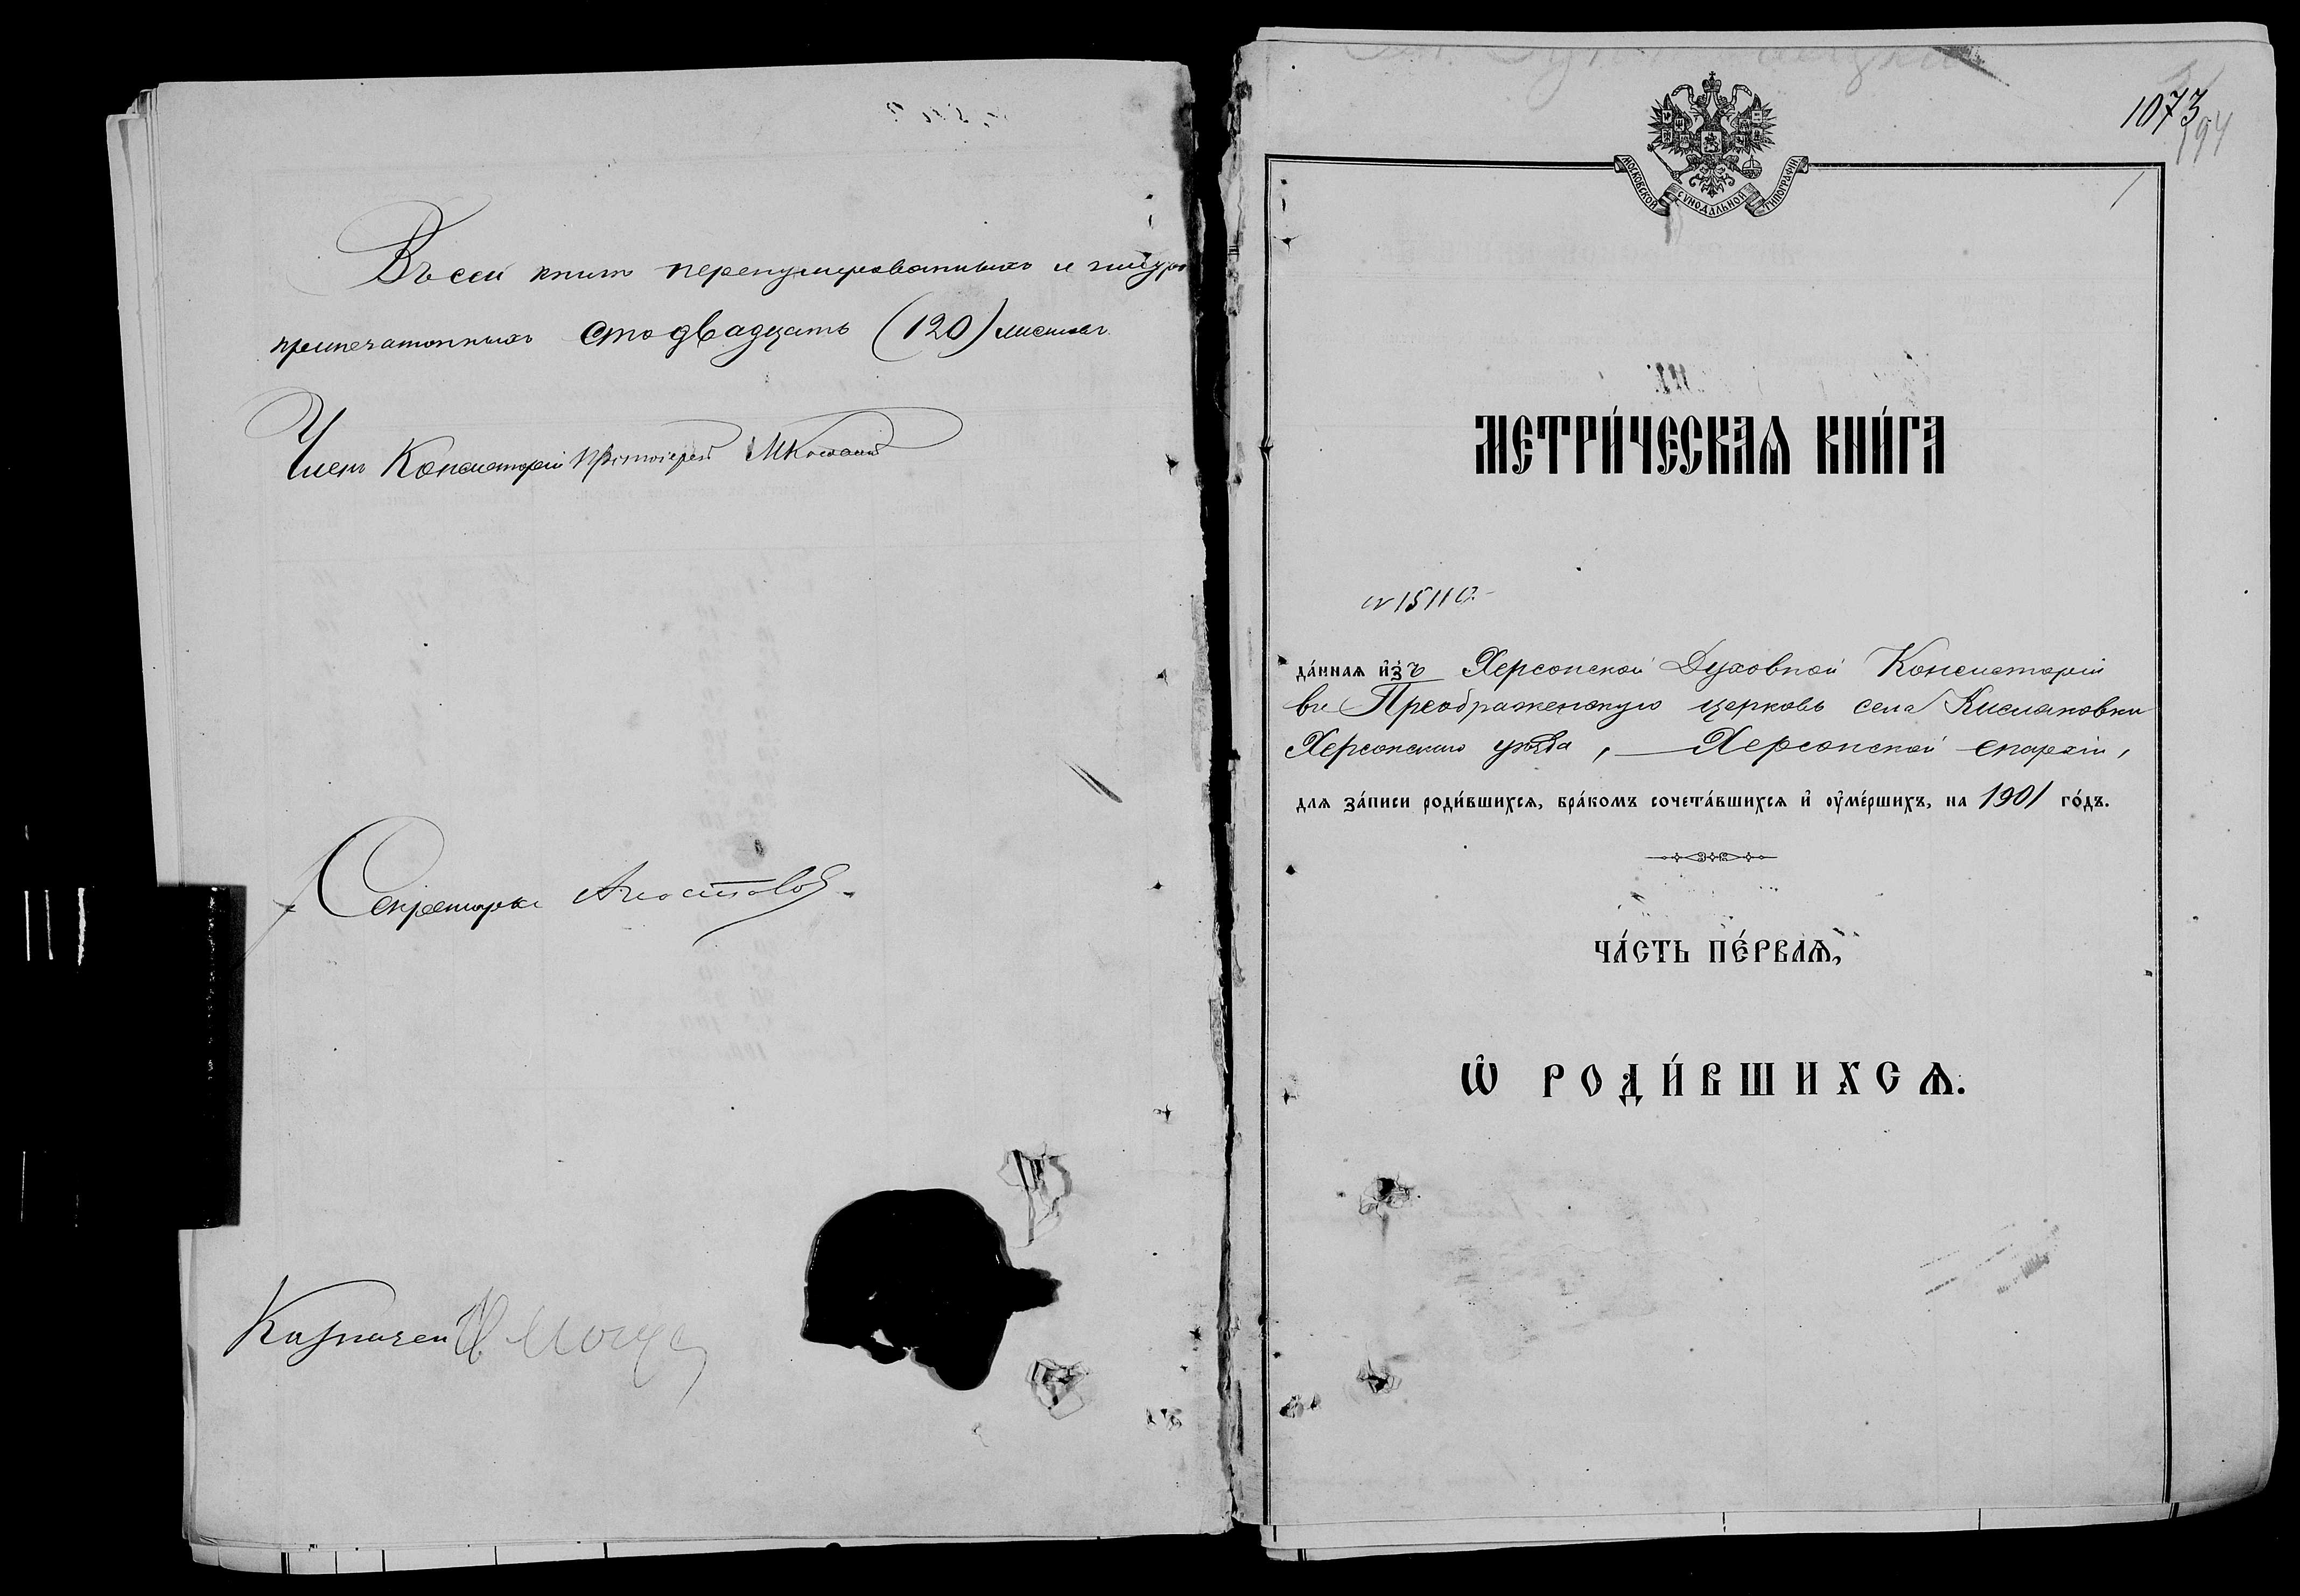 Въ сей книгѣ перенумерованныхъ и шнуро
припечатанныхъ сто двадцать (120) листовъ
Членъ Консисторіи Протоіерей
Секретарь
Казначей
1073
194
МОСКОВСКОЙ СѴНОДАЛЬНОЙ ТИПОГРАФІИ
МЕТРИ́ЧЕСКАѦ КНИ́ГА
№ 15110.
да́нная и҆зъ Херсонской Духовной Консисторіи
въ Преображенскую церковь села Кисляковки
Херсонскаго уѣзда, Херсонской епархіи,
для за́писи роди́вшихся, бра́комъ сочета́вшихся и҆ оу҆ме́ршихъ, на 1901 го́дъ.
ЧА́СТЬ ПЕ́РВАѦ,
Ѡ҆ РОДИ́ВШИХСѦ.